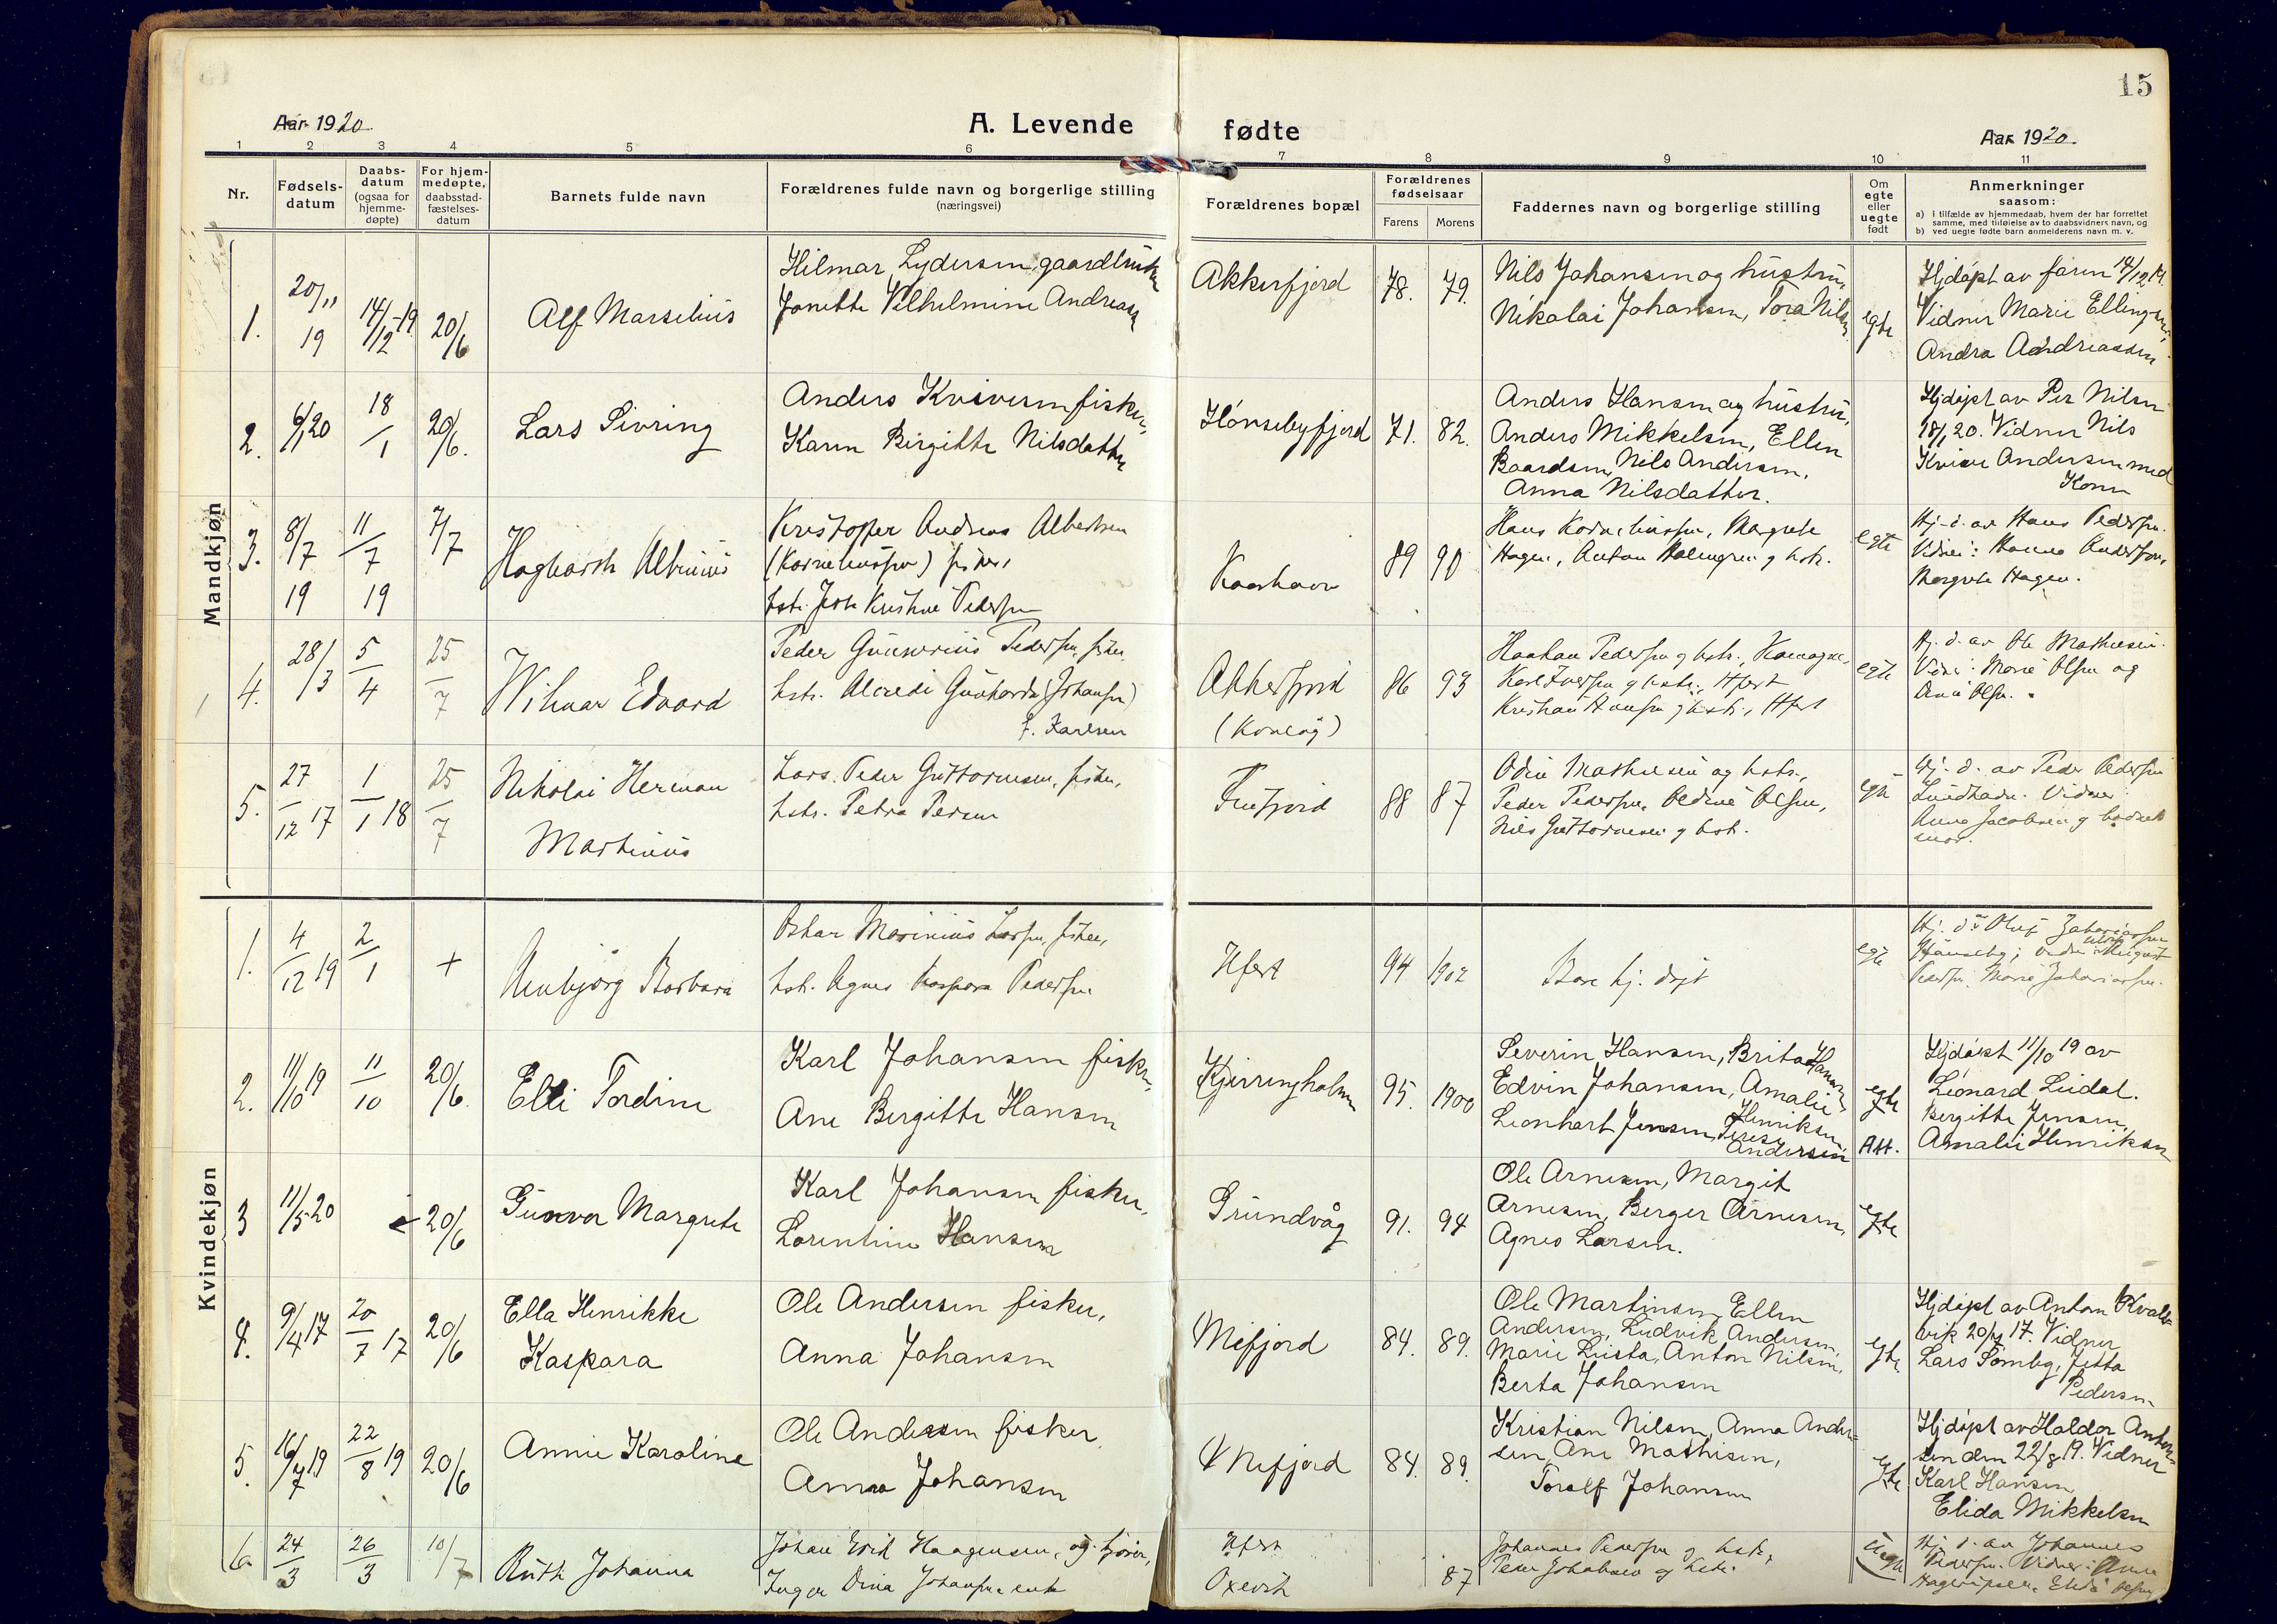 15
Aar 1920.
A. Levende fødte
Aar 1920.
1 2 3 4 5 6 7 8 9 10 11
Nr.
Fødsels-
datum
Daabs-
datum
(ogsaa for
hjemme-
døpte)
For hjem-
medøpte,
daabsstad-
fæstelses-
datum
Barnets fulde navn
Forældrenes fulde navn og borgerlige stilling
(næringsvei)
Forældrenes bopæl
Forældrenes
fødselsaar
Farens Morens
Faddernes navn og borgerlige stilling
Om
egte
eller
uegte
født
Anmerkninger
saasom:
a) i tilfælde av hjemmedaab, hvem der har forrettet
samme, med tilføielse av to daabsvidners navn, og
b) ved uegte fødte barn anmelderens navn m. v.
Mandkjøn
1.
20/11
19
14/12-19
20/6
Alf Marselius
Hilmar Lydersen, gaardbruker
Janette Vilhelmine Andreass
Akkerfjord
78. 79.
Nils Johansen og hustru,
Nikolai Johansen, Tora Nilsen
egte
Hjdøpt av faren 14/12 19.
Vidner Marie Ellingsen,
Andra Andreassen
2.
6/1 20
18/1
20/6.
Lars Sivring
Anders Kviversen fisker,
Karen Birgitte Nilsdatter
Hønsebyfjord
71. 82.
Anders Hansen og hustru,
Anders Mikkelsen, Ellen
Baardsen, Nils Andersen,
Anna Nilsdatter.
Hjdøpt av Per Nilsen
18/1 20. Vidner Nils
Andersen med
Kone
3.
8/7
19
11/7
19
7/7
Hagbarth Albinius
Kristoffer Andreas Albertsen
(Korneliussen) fisker,
hstr. Kristine Pedersen
Kaarhavn
89 90
Hans Korneliussen, Margrete
Hagen, Anton Holmgren g hstr.
egte
Hj-d. av Hans Pedersen.
Vidner: Hanna Andersen,
Margrete Hagen.
4.
28/3
5/4
25/7
Wilmar Edvard
Peder Gunnerius Pedersen, fisker,
hstr. Alfrede Gunharda (Johansen)
f. Karlsen
Akkerfjord
86 93
Haakon Pedersen g hstr.,
Karl Iversen g hstr., Hfest
Kristian Hansen g hstr., Hfest
egte
Hj. d. av Ole Mathiesen.
Vidner: Marie Olsen og
Olsen.
5.
27/12 17
1/1 18
25/7
Nikolai Herman
Martinius
Lars Peder Guttormsen, fisker,
hstr. Petra Persen
88 87
Odin Mathiesen og hstr.,
Peder Pedersen, Oldine Olsen,
Nils Guttormsen g hstr.
egte
Hj. d. av Peder Pedersen
Vidner
Anna Jacobsen g barnets
mor.
Kvindekjøn
1.
4/12 19
2/1
+
Annbjørg Barbara
Oskar Marinius Larsen, fisker,
hstr. Agnes Kaspara Pedersen
Hfest
94 1902
Bare hj. døpt
egte
Hj. d. Oluf Zakariassen
Hønseby; vidner: August
Pedersen, Marie Zakariassen.
2.
11/10 19
11/10
20/6
Elli Tordine
Karl Johansen fisker,
Ane Bergitte Hansen
Kjerringholmen
95. 1900
Severin Hansen, Brita Hansen,
Edvin Johansen, Amalie
Henriksen,
Leonhart Jensen, Terese
Andersen
egte
AH.
Hjdøpt 11/10 19 av
Leonard Leidal.
Bergitte Jensen,
Amalie Henriksen
3
11/5 20
20/6
Gunvor Margrete
Karl Johansen fisker,
Lorentine Hansen
Grundvåg
91. 94
Ole Arnesen, Margit
Arnesen, Berger Arnesen,
Agnes Larsen.
egte
4.
9/4 17
20/7 17
20/6
Ella Henrikke
Kaspara
Ole Andersen fisker,
Anna Johansen
Mefjord
84. 89.
Ole Martinsen, Ellen
Andersen, Ludvik Andersen,
Marie Lusta, Anton Nilsen,
Berta Johansen
egte
Hjdøpt av Anton Kvals-
vik 20/7 17. Vidner
Lars Somby, Jetta
Pedersen
5.
16/7 19
22/8 19
20/6
Annie Karoline
Ole Andersen fisker
Anna Johansen
Mefjord
84. 89.
Kristian Nilsen, Anna Ander-
sen, Ane Mathisen,
Toralf Johansen
egte
Hjdøpt av Haldor Anton-
sen den 22/8 19. Vidner
Karl Hansen,
Elida Mikkelsen
6
24/3
26/3
10/7
Ruth Johanna
Johan Erik Haagensen,
Inger Dina Johansen, enke
Hfest
Oxevik
87
Johannes Pedersen og hstr.,
Peder Jakobsen og hstr.
uegte
Hj. d. av Johannes
Pedersen. Vidner: Anna
Elida Olsen